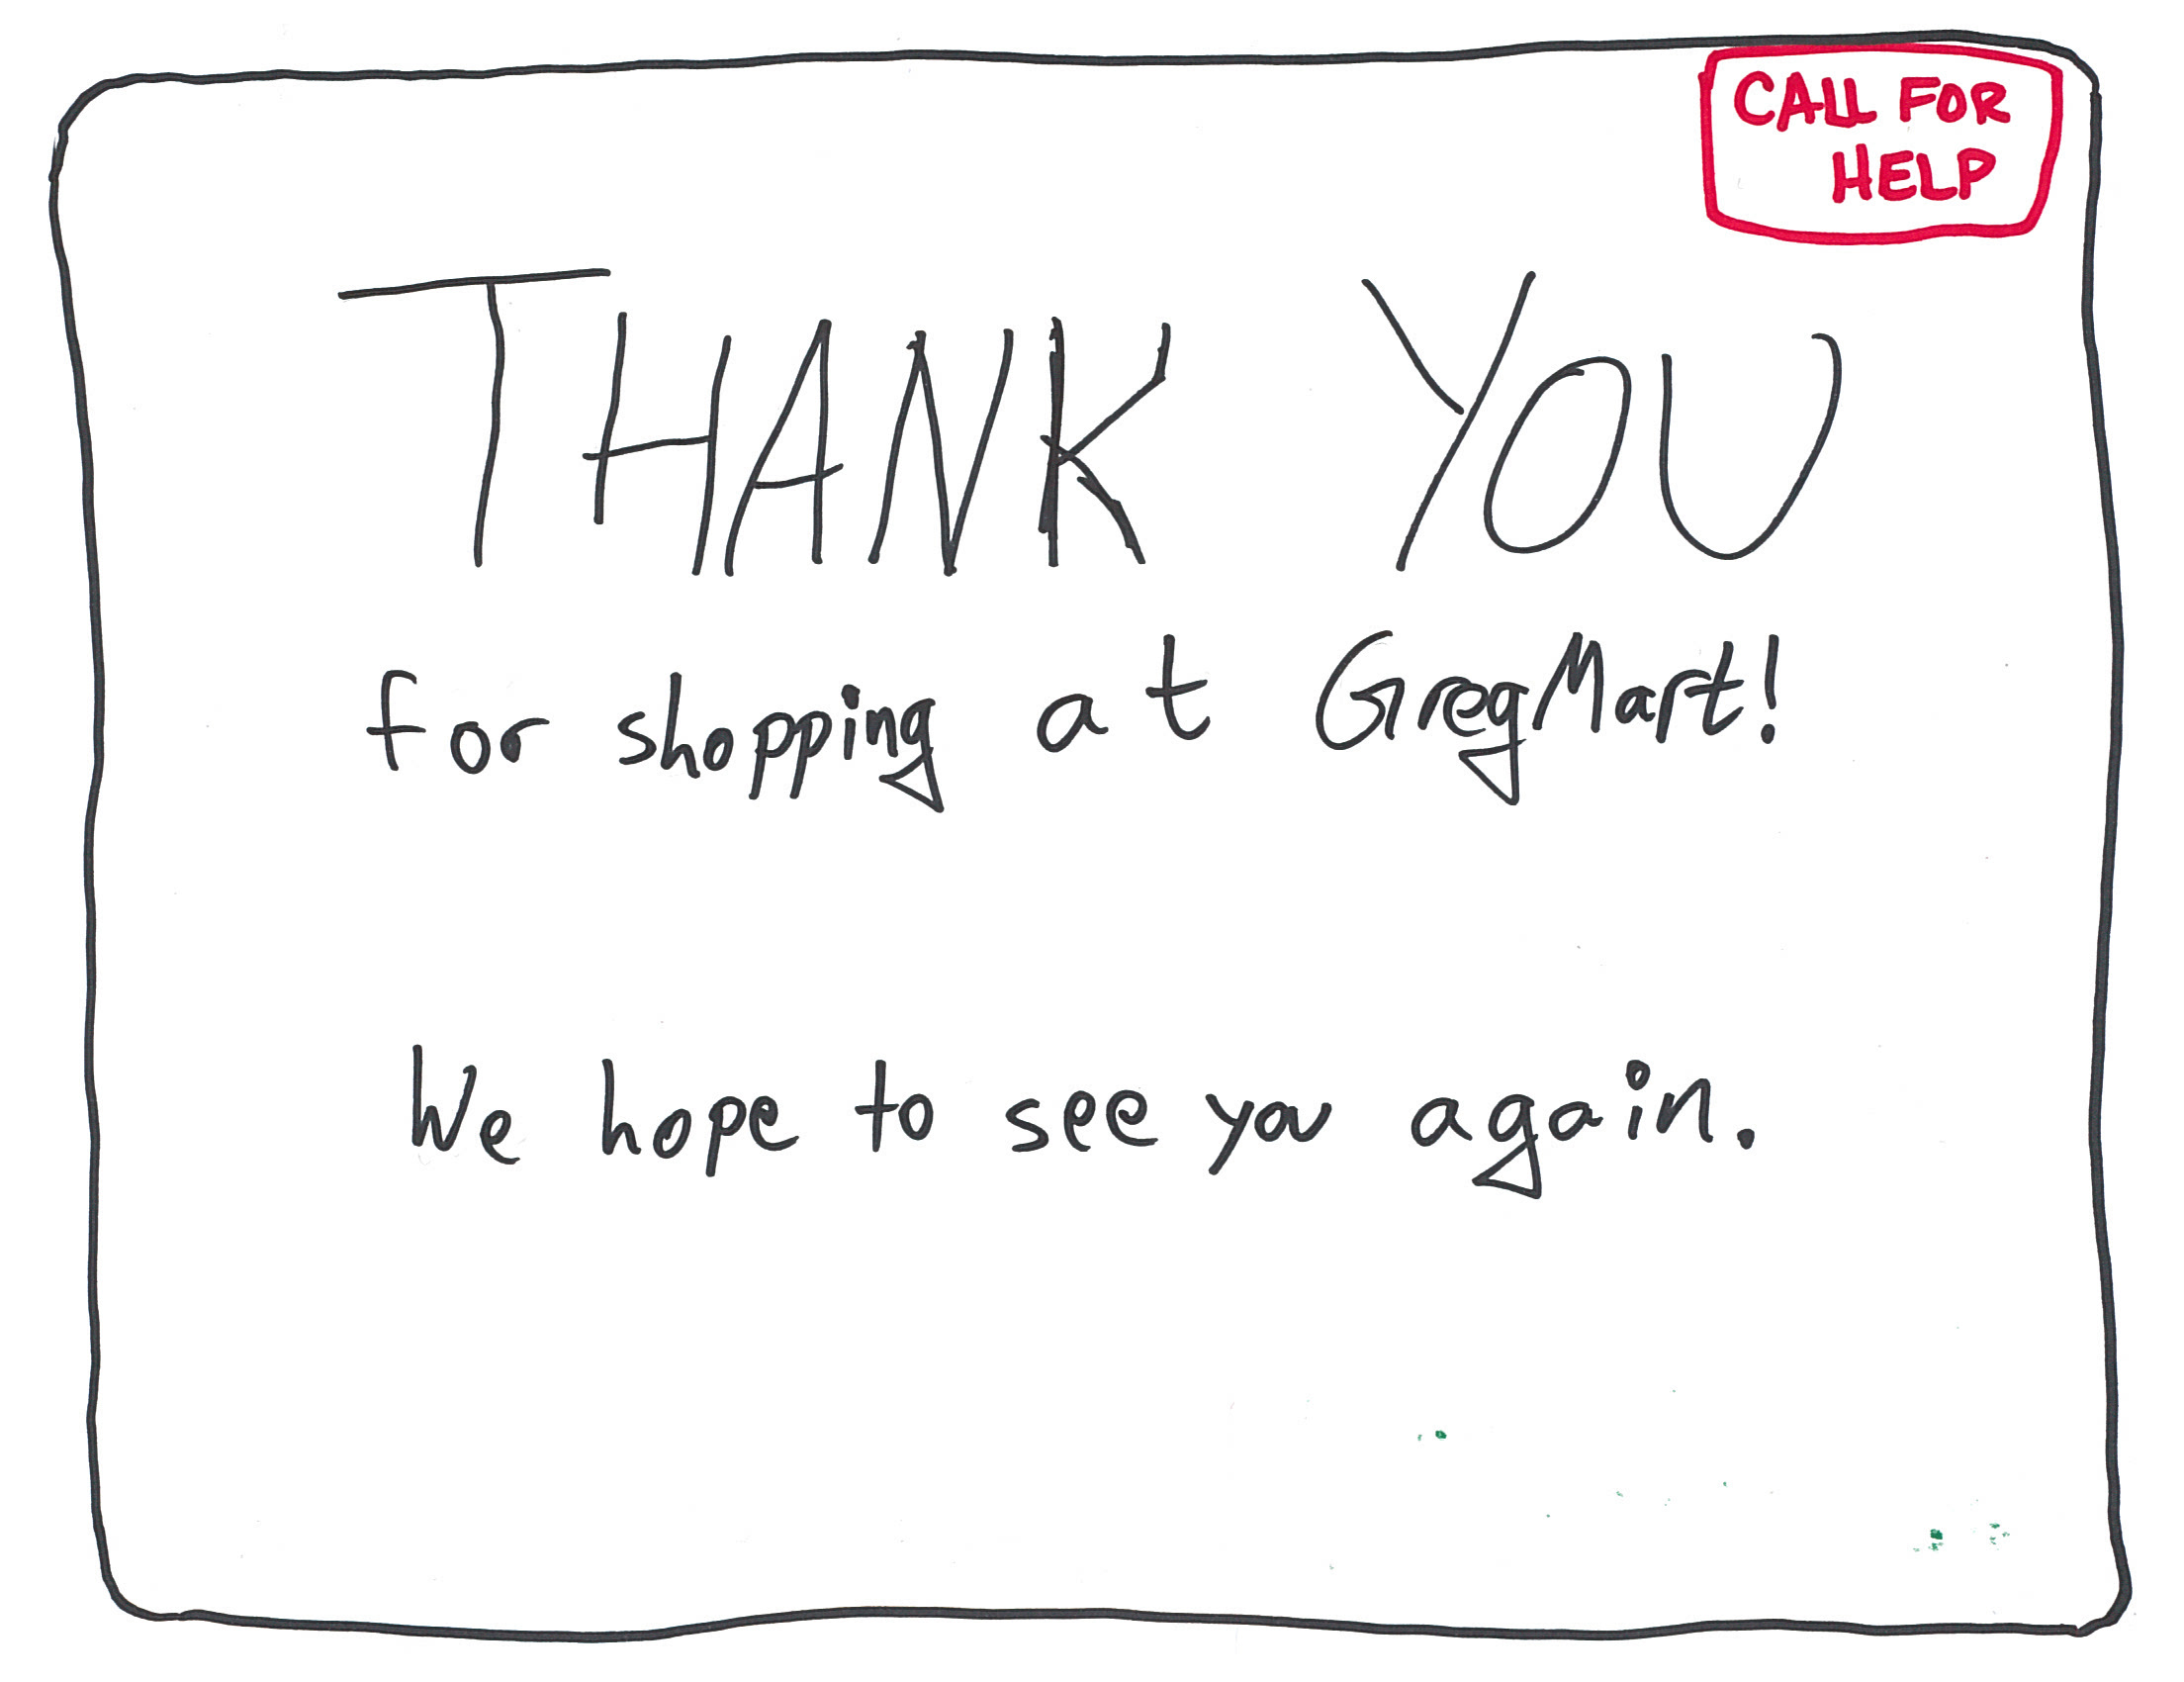 CALL FOR
HELP
THANK YOU
for shopping at GregMart!
We hope to see you again.